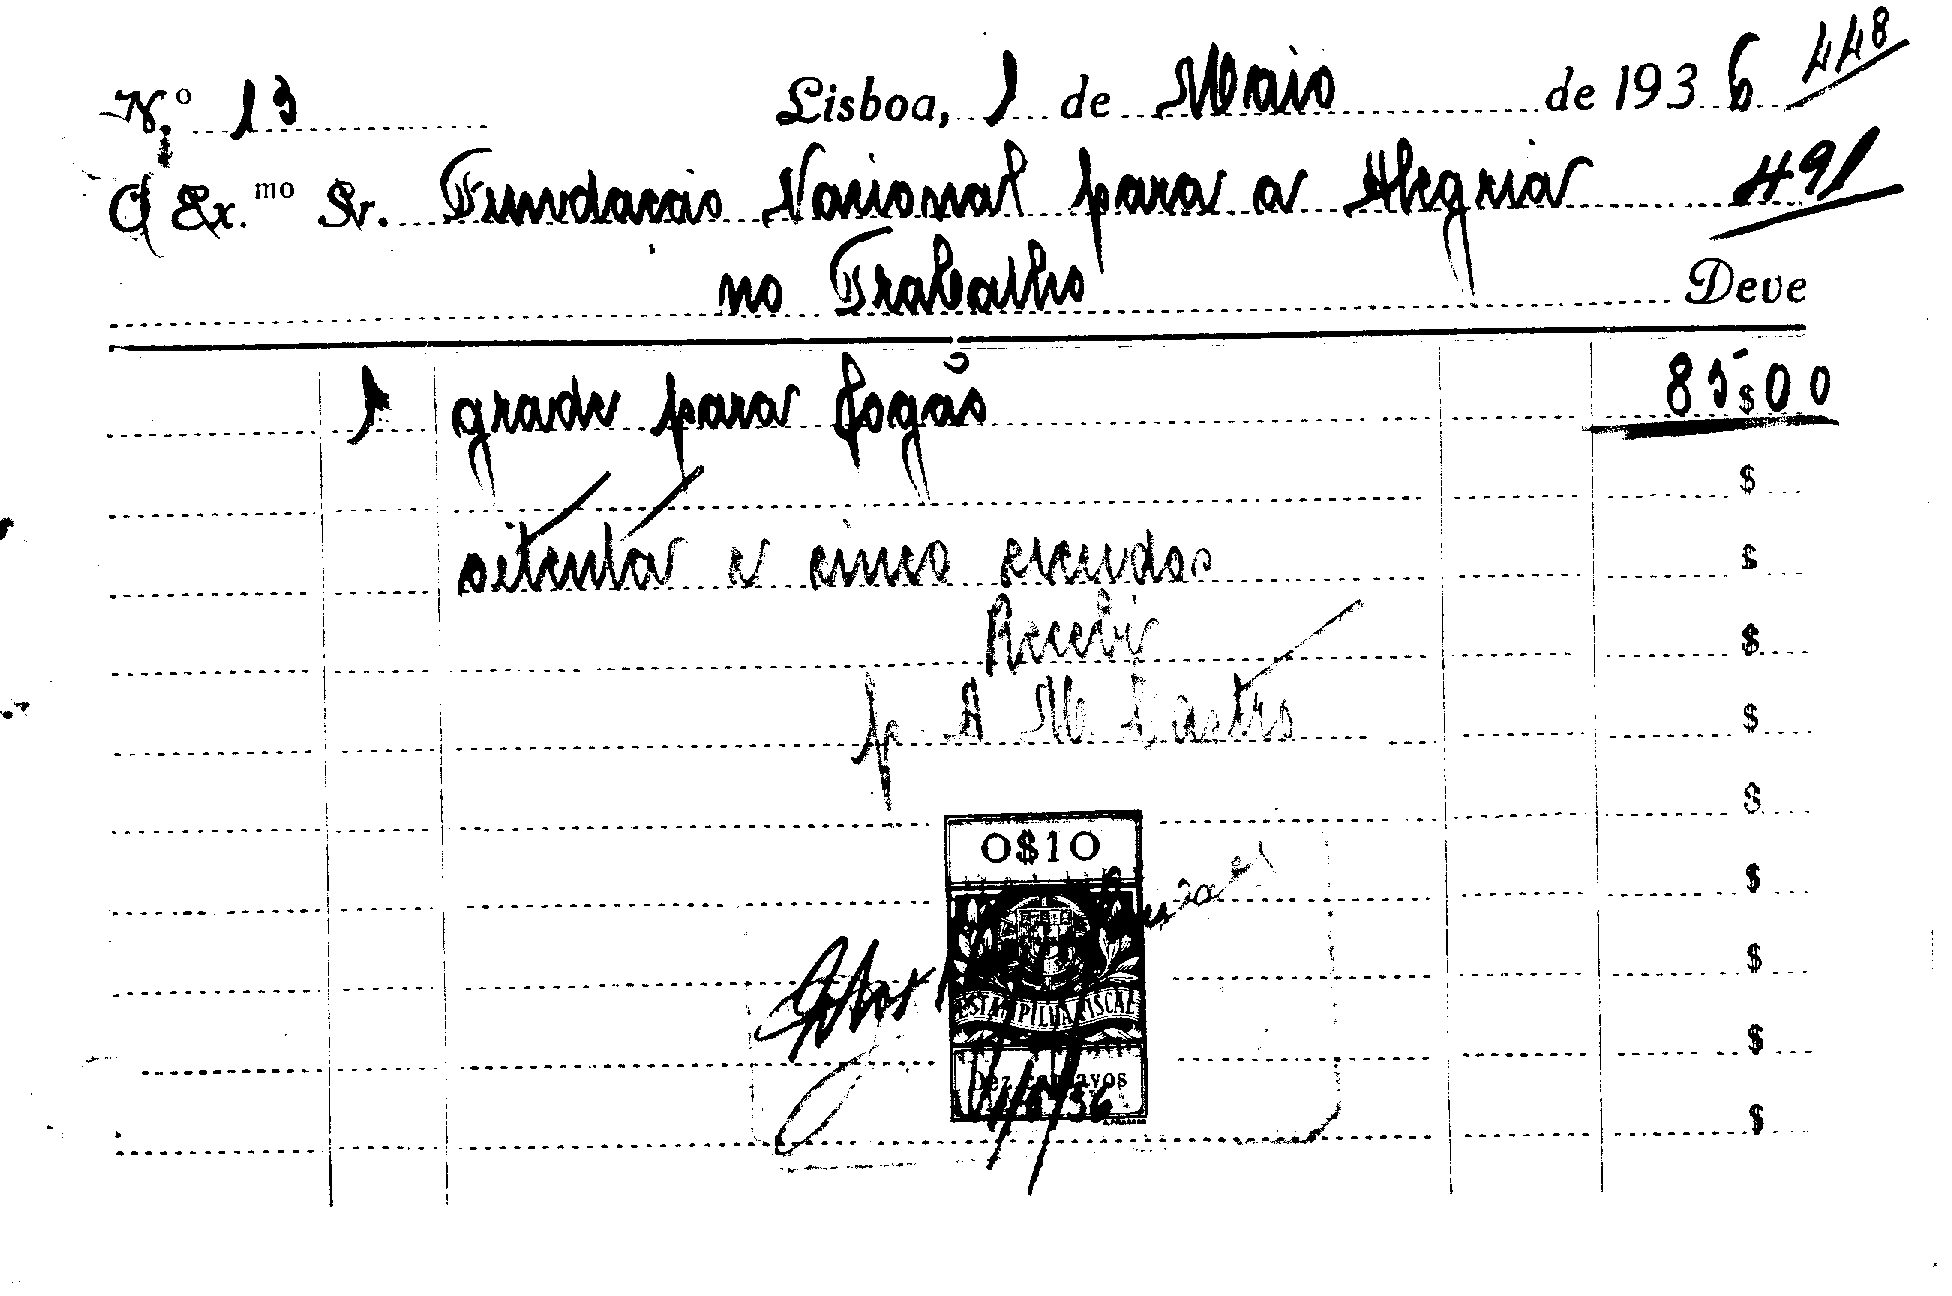 N.º 13 Lisboa, 1 de Maio de 1936 448
O Ex.mo Sr. Fundacao Nacional para a Alegria 491
no Trabalho Deve
1 grade para fogão 85$00
$
setenta e cinco escudos $
Recebi $
p A M Castro $
$
0$10
$
$
ESTAMPILHA FISCAL
$
Dez centavos
1/5/36
$